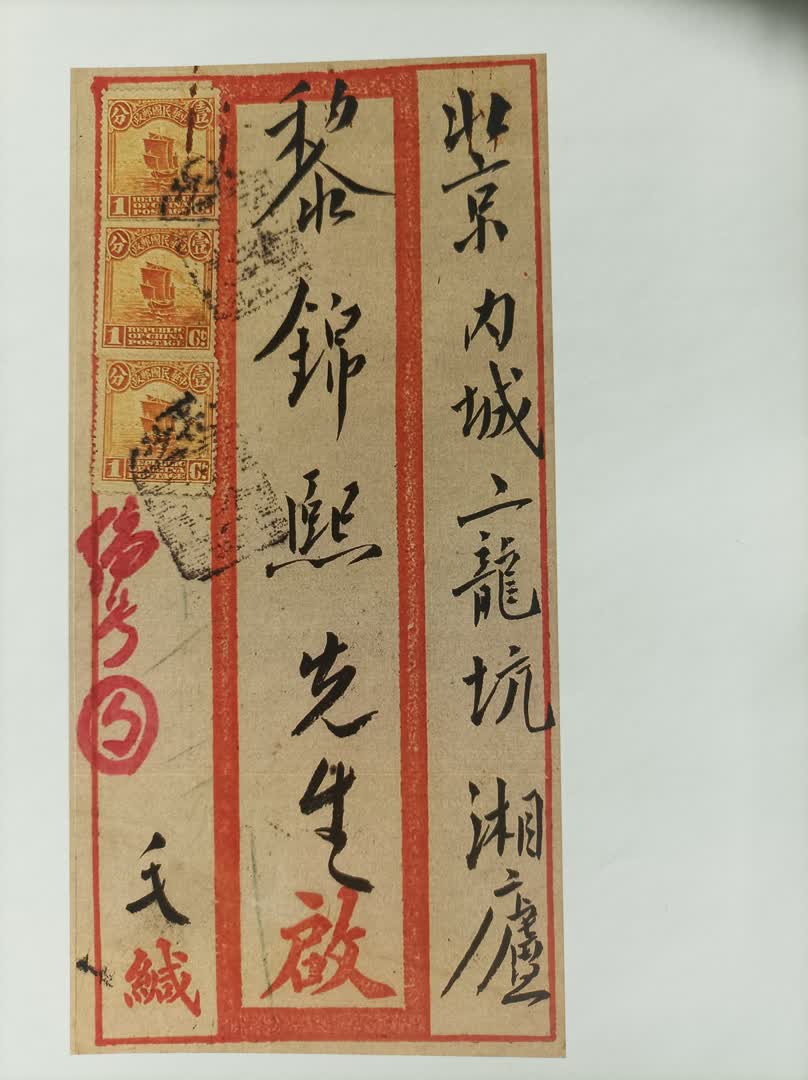 北京内城二龍坑湘廬
黎錦熙先生啟
中華民國郵政
壹
分
1 REPUBLIC OF CHINA POSTAGE Ct.
中華民國郵政
壹
分
1 REPUBLIC OF CHINA POSTAGE Ct.
中華民國郵政
壹
分
1 REPUBLIC OF CHINA POSTAGE Ct.
编号
毛緘